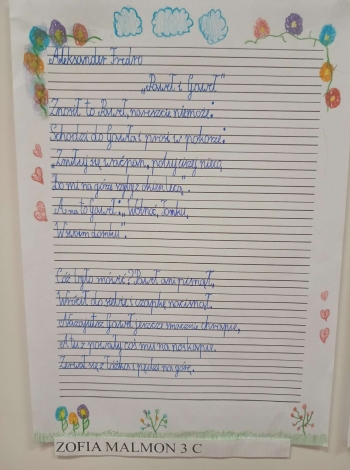 Aleksander Fredro
„Paweł i Gaweł”
Znosił to Paweł, nareszcie nie może;
Schodzi do Gawła i prosi w pokorze:
„Zmiłuj się waćpan, poluj ciszej nieco,
Bo mi na górze szyby z okien lecą”.
A na to Gaweł: „Wolnoć, Tomku,
W swoim domku”.
Cóż było mówić? Paweł ani pisnął,
Wrócił do siebie i czapkę nacisnął.
Nazajutrz Gaweł jeszcze smacznie chrapie,
A tu z powały coś mu na nos kapie.
Zerwał się z łóżka i pędzi na górę.
ZOFIA MALMON 3 C